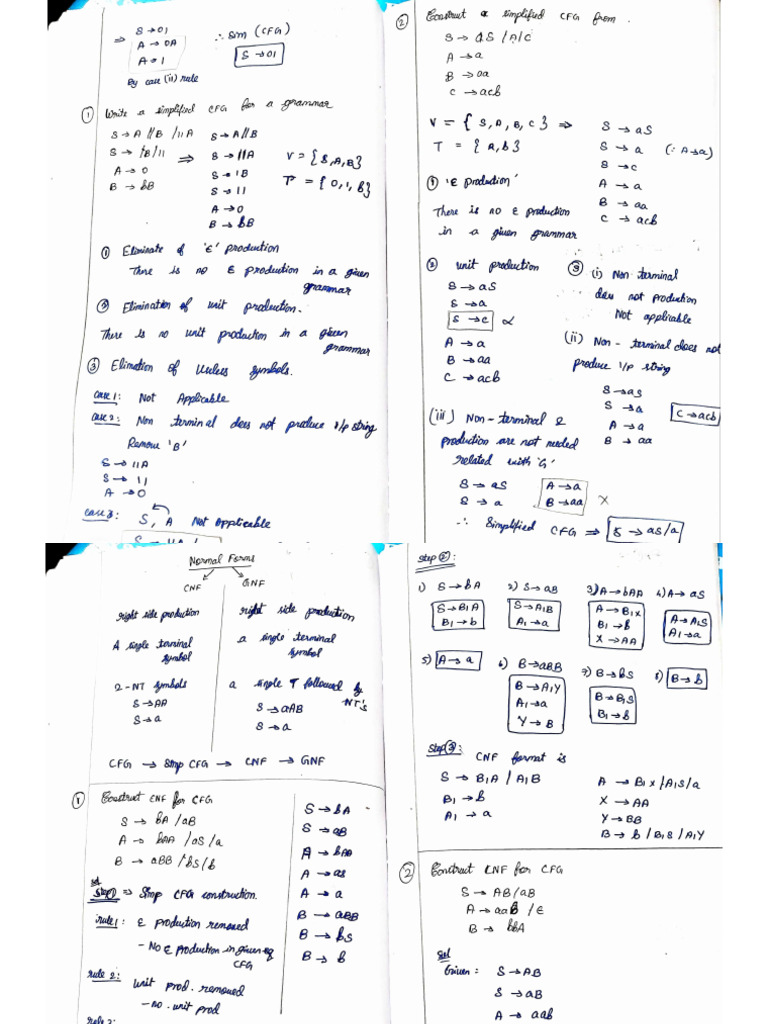 ⇒ S → 01
A → 0A
A → 1
∴ Sim (CFG)
S → 01
By case (ii) rule
① Write a simplified CFG for a grammar
S → A11B / 11A
S → 1B / 11
A → 0
B → bB
⇒
S → A11B
S → 11A
S → 1B
S → 11
A → 0
B → bB
V = {S, A, B}
T = {0, 1, b}
① Eliminate of 'ε' production
There is no ε production in a given
grammar
② Elimination of unit production.
There is no unit production in a given
grammar
③ Elimation of Useless symbols.
case 1: Not Applicable
case 2: Non terminal does not produce i/p string
Remove 'B'
S → 11A
S → 11
A → 0
case 3: S, A Not Applicable
② Construct a simplified CFG from
S → aS / A / C
A → a
B → aa
C → acb
V = { S, A, B, C } ⇒
T = { a, b }
S → aS
S → a (∵ A → a)
S → c
A → a
B → aa
C → acb
① 'ε production'
There is no ε production
in a given grammar
② unit production
S → aS
S → a
S → c
A → a
B → aa
C → acb
③ (i) Non-terminal
does not production
Not applicable
(ii) Non-terminal does not
produce i/p string
S → aS
S → a
A → a
B → aa
C → acb
(iii) Non-terminal &
production are not needed
related with 'G'
S → aS
S → a
A → a
B → aa
X
∴ Simplified CFG ⇒ S → aS/a
Normal Forms
CNF GNF
right side production
A single terminal
symbol
2-NT symbols
S → AA
S → a
right side production
a single terminal
symbol
a single T followed by
NT's
S → aAB
S → a
CFG → Simp CFG → CNF → GNF
① Construct CNF for CFG
S → bA / aB
A → bAA / aS / a
B → aBB / bS / b
Sol
Step① ⇒ Simp CFG construction.
rule 1: ε production removed
- No ε production in given
CFG
rule 2: unit prod. removed
- no. unit prod
rule 3:
S → bA
S → aB
A → bAA
A → aS
A → a
B → aBB
B → bS
B → b
Step②:
1) S → bA
S → B₁A
B₁ → b
2) S → aB
S → A₁B
A₁ → a
3) A → bAA
A → B₁X
B₁ → b
X → AA
4) A → aS
A → A₁S
A₁ → a
5) A → a
6) B → aBB
B → A₁Y
A₁ → a
Y → B
7) B → bS
B → B₁S
B₁ → b
8) B → b
Step③:
CNF format is
S → B₁A / A₁B
B₁ → b
A₁ → a
A → B₁X / A₁S / a
X → AA
Y → BB
B → b / B₁S / A₁Y
② Construct CNF for CFG
S → AB / aB
A → aaB / ε
B → bbA
Sol
Given: S → AB
S → aB
A → aab